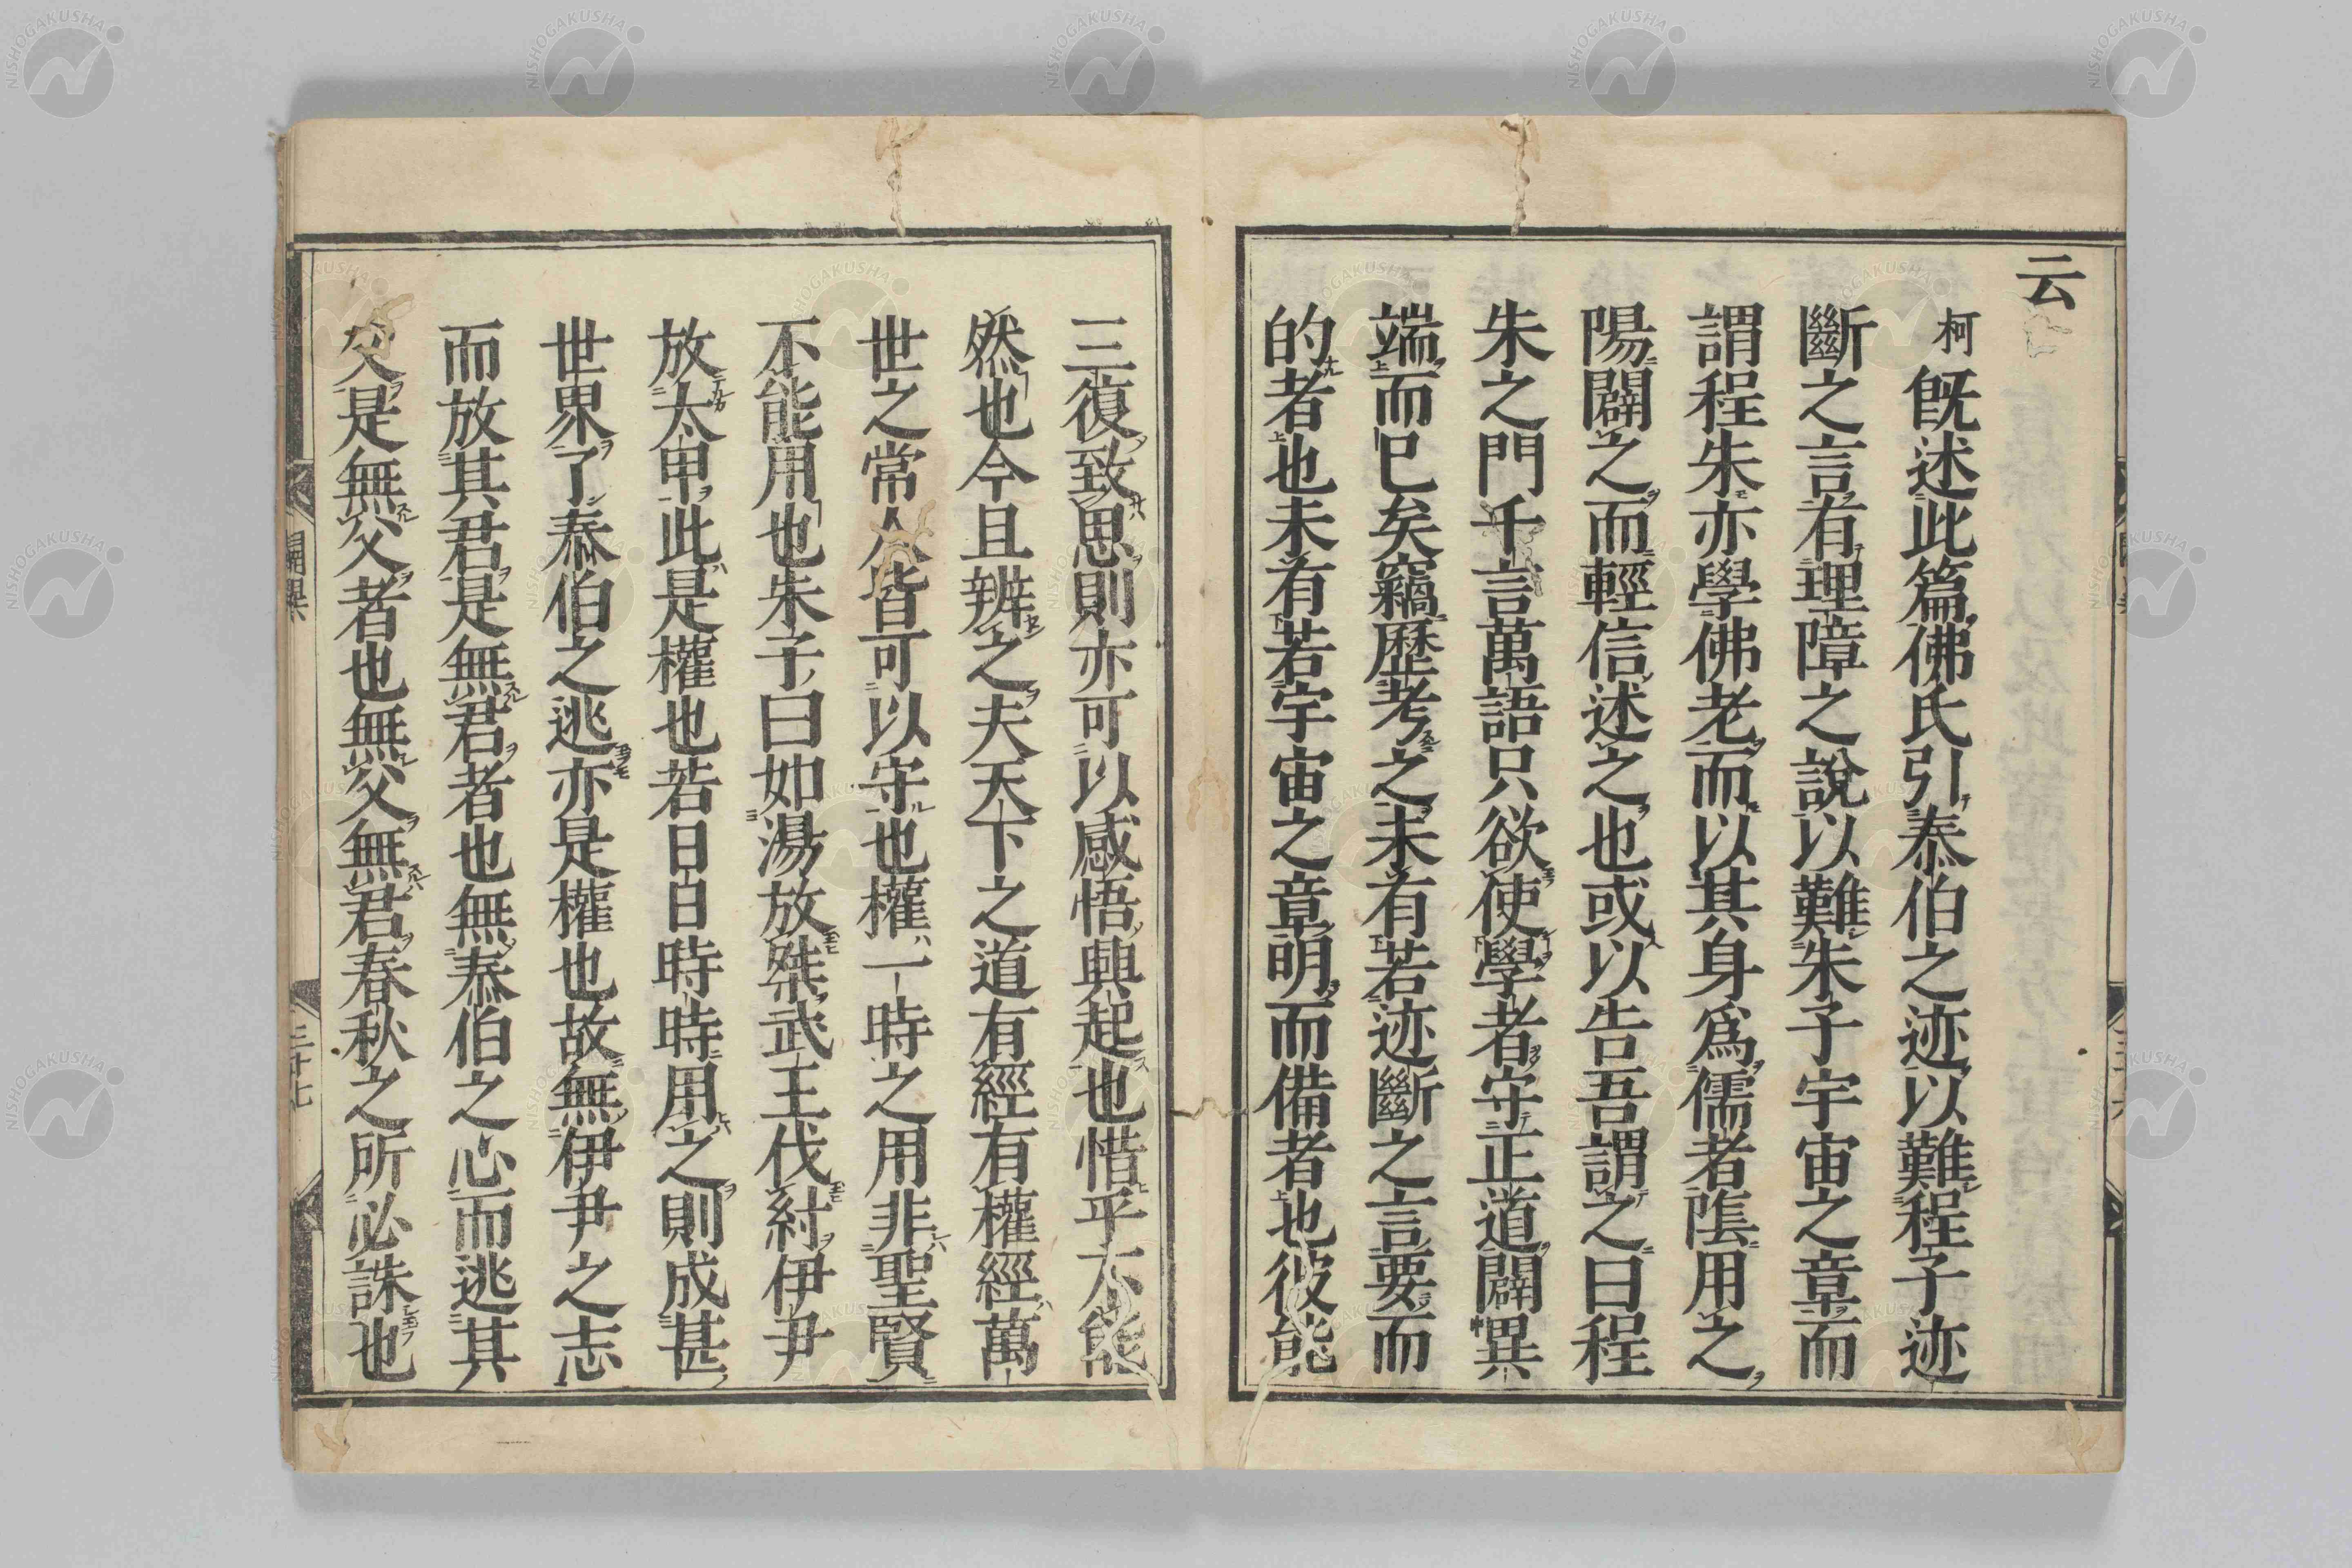 云
柯既述此篇佛氏引泰伯之迹以難程子迹
斷之言有理障之說以難朱子宇宙之章而
謂程朱亦學佛老而以其身爲儒者陰用之
陽闢之而輕信述之也或以告吾謂之曰程
朱之門千言萬語只欲使學者守正道闢異
端而已矣竊歷考之未有若迹斷之言要而
的者也未有若宇宙之章明而備者也彼能
三復致思則亦可以感悟興起也惜乎不能
然也今且辨之夫天下之道有經有權經萬
世之常人皆可以守也權一時之用非聖賢
不能用也朱子曰如湯放桀武王伐紂伊尹
放太甲此是權也若日日時時用之則成甚
世界了泰伯之逃亦是權也故無伊尹之志
而放其君是無君者也無泰伯之心而逃其
父是無父者也無父無君春秋之所必誅也
闢異
三十七
NISHOGAKUSHA